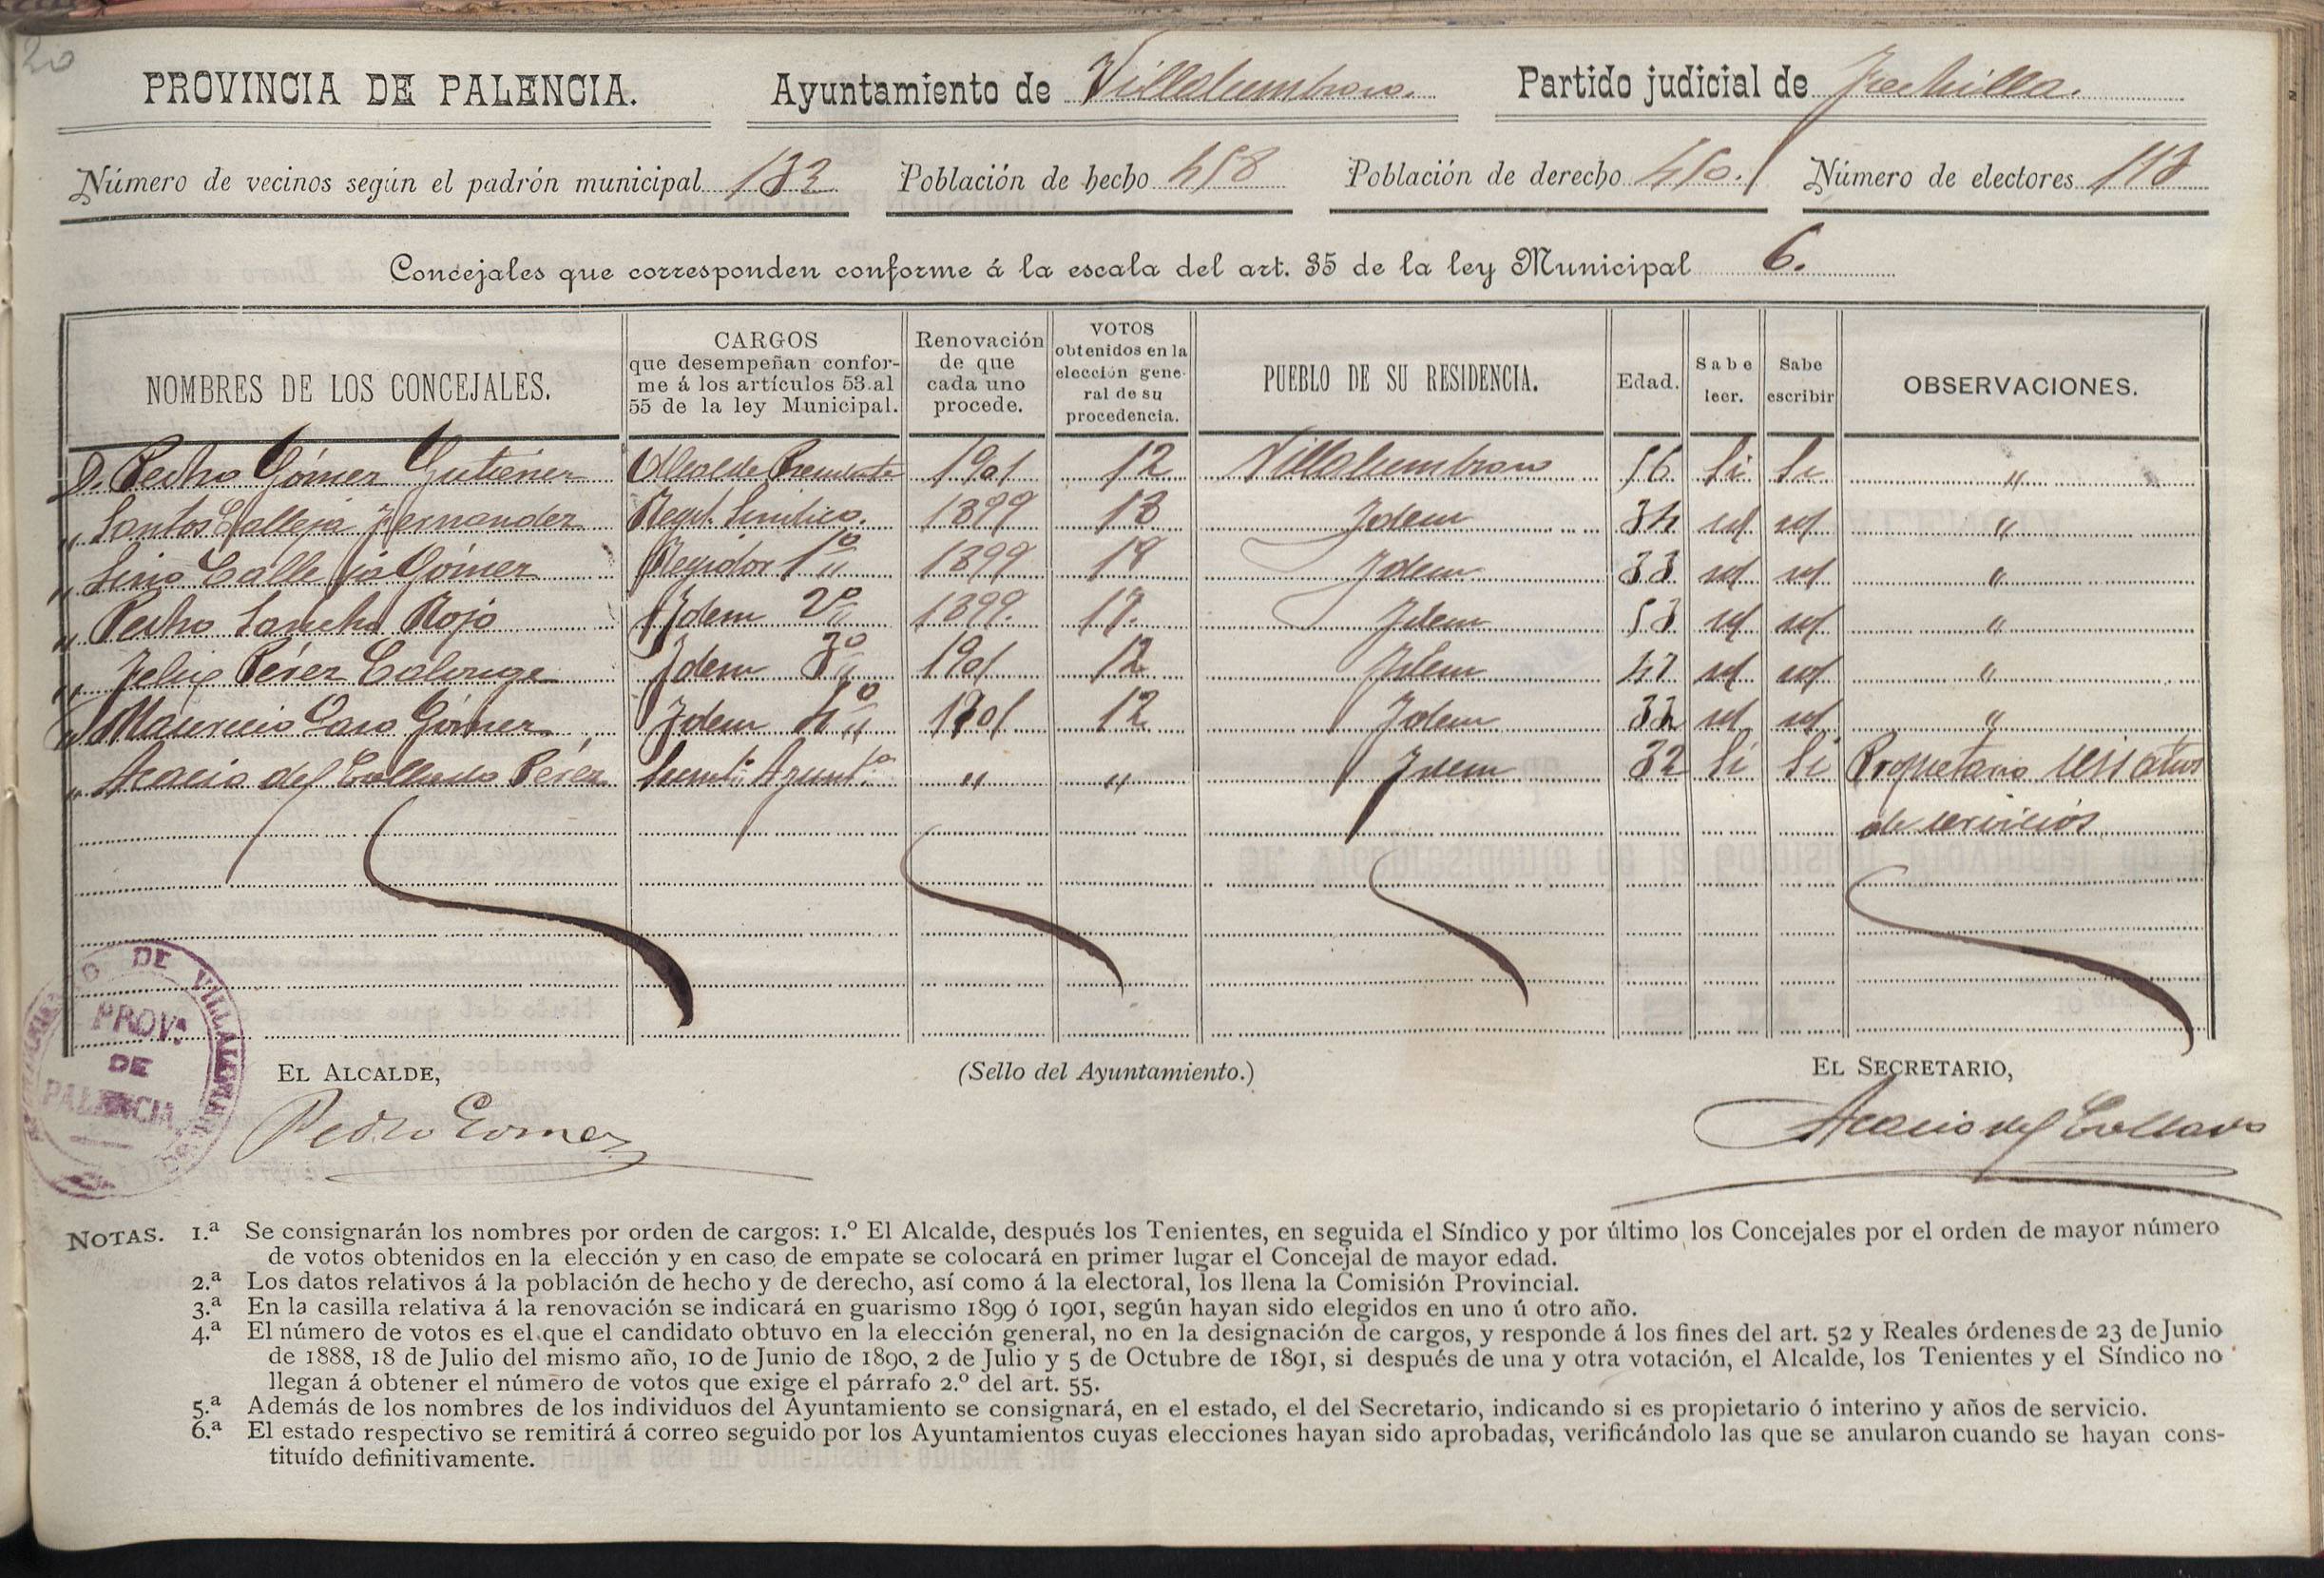 20
PROVINCIA DE PALENCIA. Ayuntamiento de Villalumbroso. Partido judicial de Frechilla.
Número de vecinos según el padrón municipal 132 Población de hecho 458 Población de derecho 450. Número de electores 113
Concejales que corresponden conforme á la escala del art. 35 de la ley Municipal 6.
NOMBRES DE LOS CONCEJALES. CARGOS que desempeñan conforme á los artículos 53 al 55 de la ley Municipal. Renovación de que cada uno procede. VOTOS obtenidos en la elección general de su procedencia. PUEBLO DE SU RESIDENCIA. Edad. Sabe leer. Sabe escribir OBSERVACIONES.
D. Pedro Gómez Gutierrez Alcalde Presidente 1901 12 Villalumbroso 56 Si Si "
" Santos Calleja Fernandez Regd. Sindico. 1899 18 Idem 34 id id "
" Lino Calleja Gómez Regidor 1º 1899 18 Idem 33 id id "
" Pedro Sancho Rojo Idem 2º 1899. 17. Idem 53 id id "
" Felix Pérez Calonge Idem 3º 1901 12 Idem 47 id id "
" Mauricio Caro Gómez Idem 4º 1901 12 Idem 32 id id "
" Acacio del Collado Pérez Secret.º Ayunt.º " " Idem 32 Si Si Propietario seis años
de servicios
AYUNTAMIENTO DE VILLALUMBROSO
PROV.ª
DE
PALENCIA
EL ALCALDE, (Sello del Ayuntamiento.) EL SECRETARIO,
Pedro Gomez Acacio del Collado
NOTAS. 1.ª Se consignarán los nombres por orden de cargos: 1.º El Alcalde, después los Tenientes, en seguida el Síndico y por último los Concejales por el orden de mayor número
de votos obtenidos en la elección y en caso de empate se colocará en primer lugar el Concejal de mayor edad.
2.ª Los datos relativos á la población de hecho y de derecho, así como á la electoral, los llena la Comisión Provincial.
3.ª En la casilla relativa á la renovación se indicará en guarismo 1899 ó 1901, según hayan sido elegidos en uno ú otro año.
4.ª El número de votos es el que el candidato obtuvo en la elección general, no en la designación de cargos, y responde á los fines del art. 52 y Reales órdenes de 23 de Junio
de 1888, 18 de Julio del mismo año, 10 de Junio de 1890, 2 de Julio y 5 de Octubre de 1891, si después de una y otra votación, el Alcalde, los Tenientes y el Síndico no
llegan á obtener el número de votos que exige el párrafo 2.º del art. 55.
5.ª Además de los nombres de los individuos del Ayuntamiento se consignará, en el estado, el del Secretario, indicando si es propietario ó interino y años de servicio.
6.ª El estado respectivo se remitirá á correo seguido por los Ayuntamientos cuyas elecciones hayan sido aprobadas, verificándolo las que se anularon cuando se hayan cons-
tituído definitivamente.